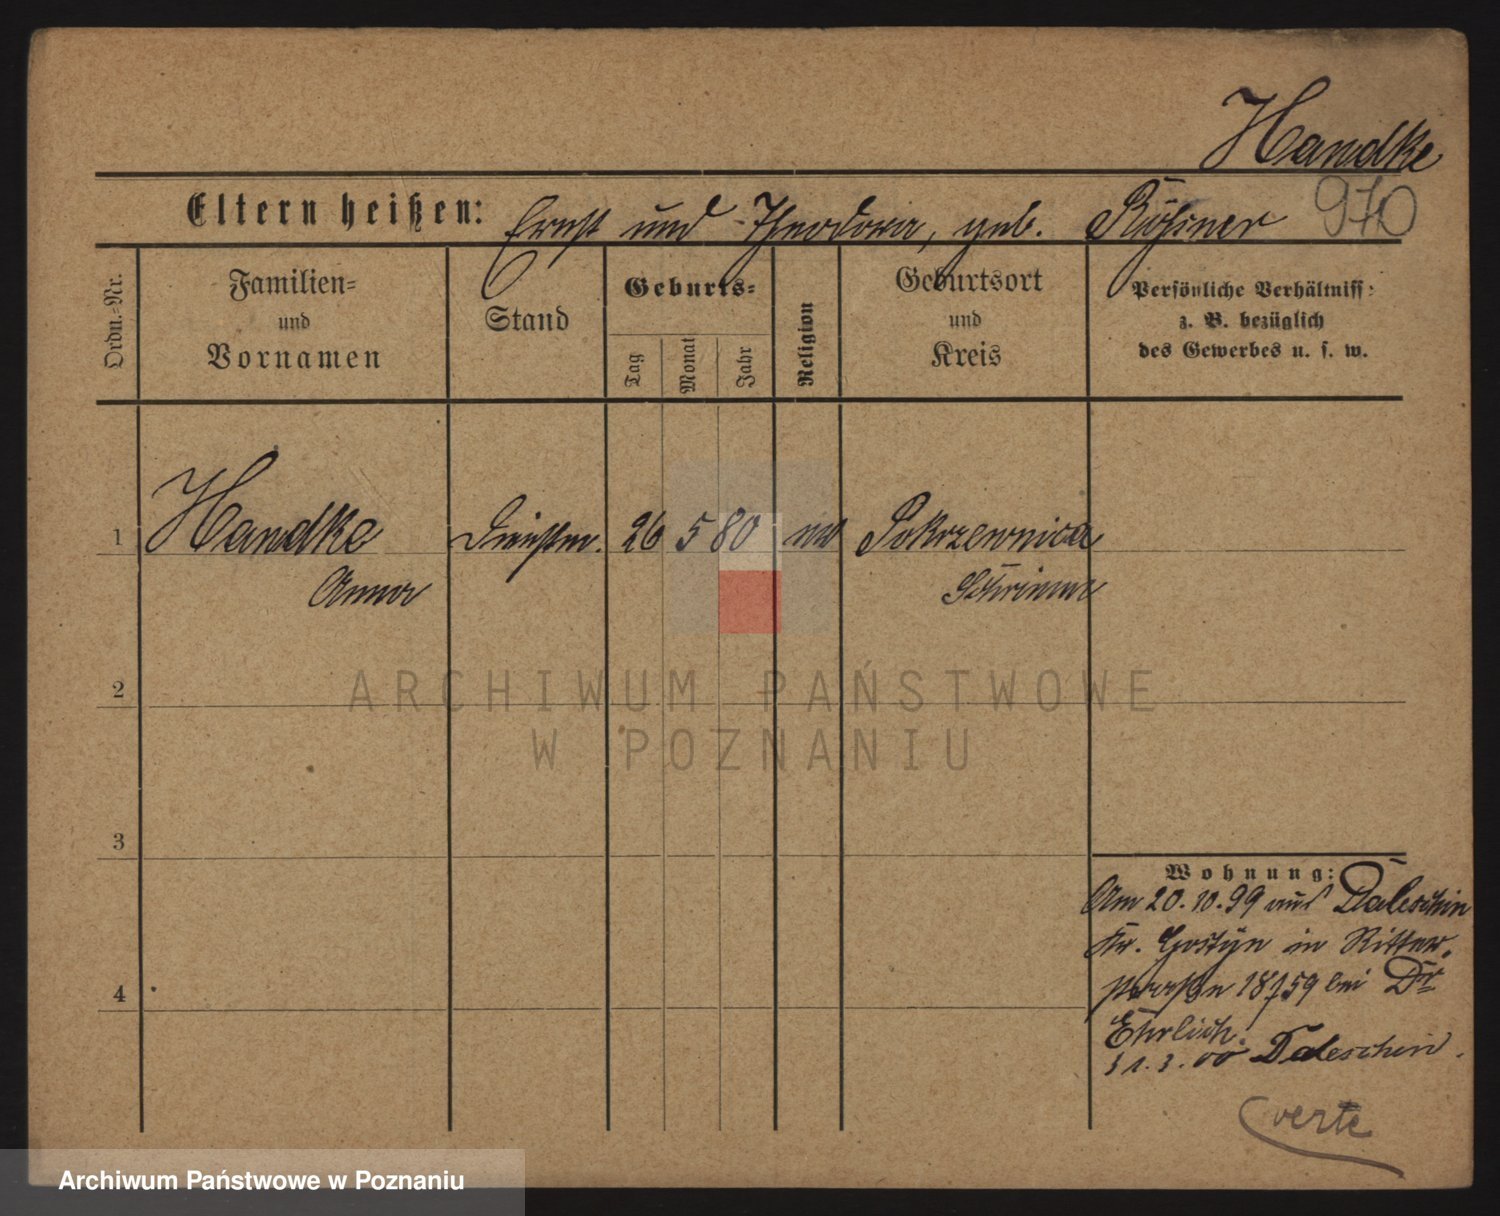 Handke
970
Eltern heißen: Ernst und Theodora, geb. Rösner
Ordn.-Nr.
Familien-
und
Vornamen
Stand
Geburts-
Tag
Monat
Jahr
Religion
Geburtsort
und
Kreis
Persönliche Verhältniss:
z. B. bezüglich
des Gewerbes u. s. w.
1 Handke Dienstm. 26 5 80 Pokrzewnica
Anna Schrimm
2
3
4
Wohnung:
Am 20.10.99 aus Daleschin
Kr. Gostyn in Ritter-
straße 18/59 bei Dr
Ehrlich.
31.3.00 Daleschin.
verte
ARCHIWUM PAŃSTWOWE
W POZNANIU
Archiwum Państwowe w Poznaniu